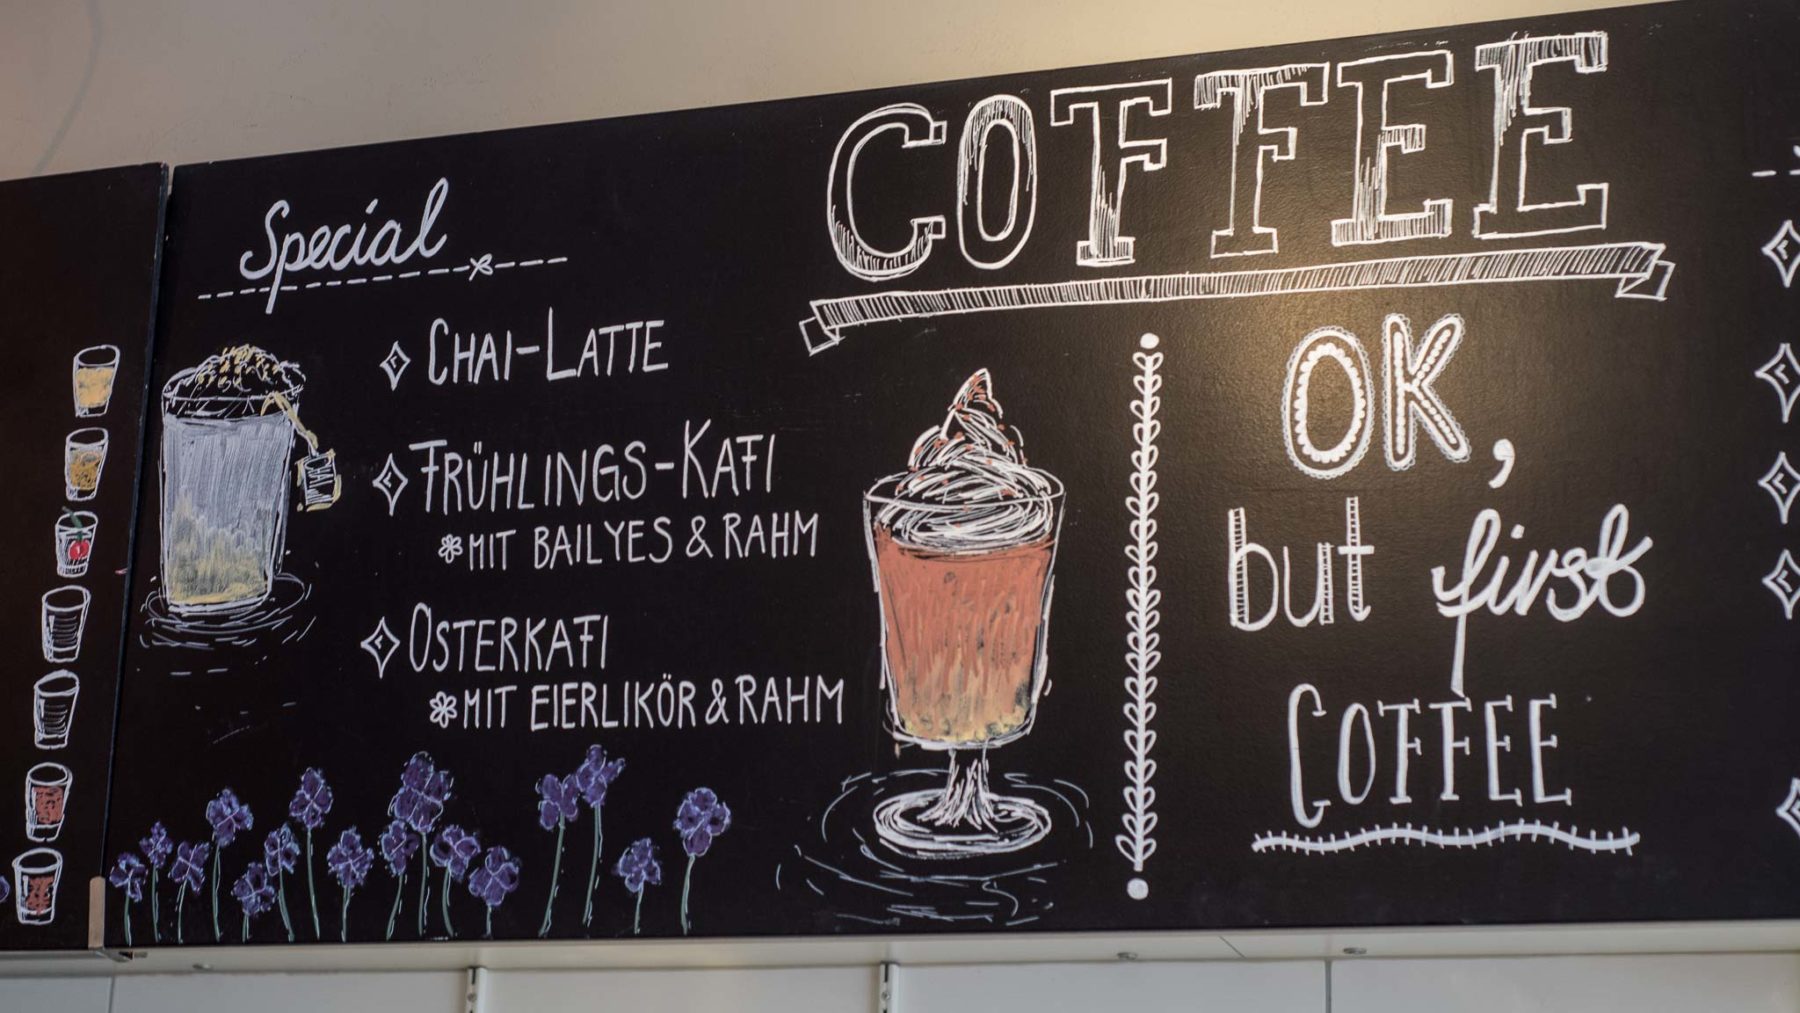 Special
CHAI-LATTE
FRÜHLINGS-KAFI
MIT BAILYES & RAHM
OSTERKAFI
MIT EIERLIKÖR & RAHM
COFFEE
OK,
but first
COFFEE